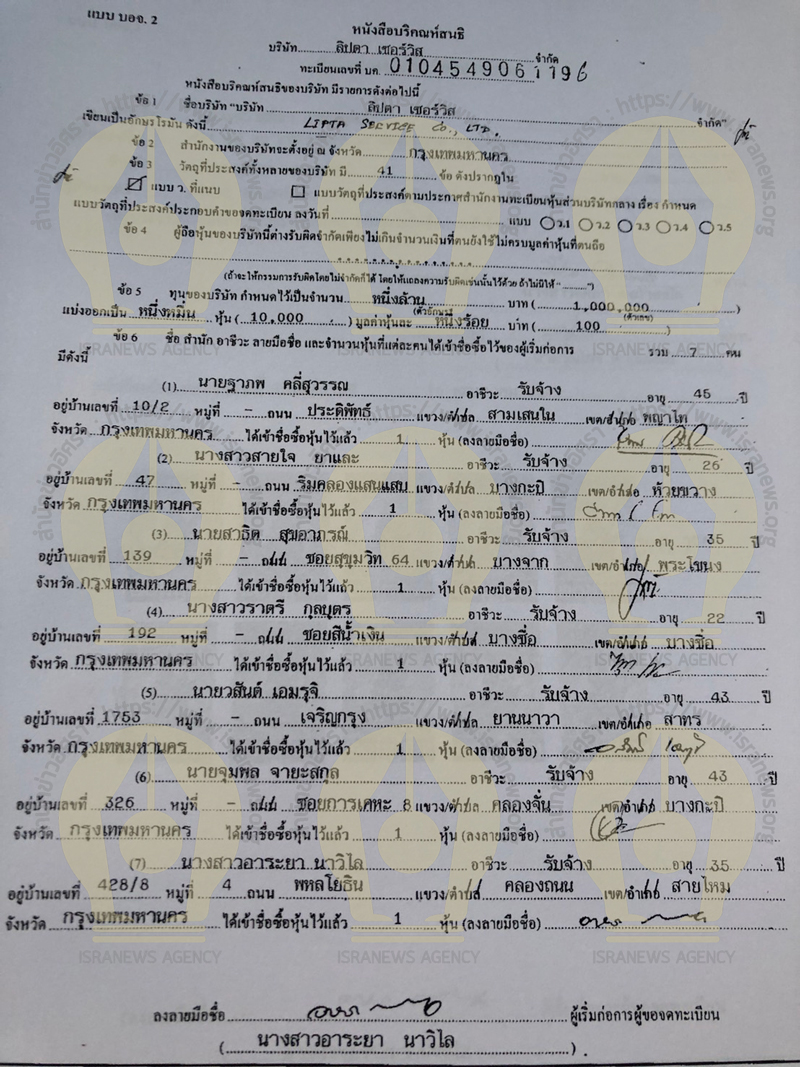 แบบ บอจ. 2
หนังสือบริคณห์สนธิ
บริษัท ลิปตา เซอร์วิส จำกัด
ทะเบียนเลขที่ บค. 0104549061196
หนังสือบริคณห์สนธิของบริษัท มีรายการดังต่อไปนี้
ข้อ 1 ชื่อบริษัท "บริษัท ลิปตา เซอร์วิส จำกัด"
เขียนเป็นอักษรโรมัน ดังนี้ LIPTA SERVICE CO., LTD.
ข้อ 2 สำนักงานของบริษัทจะตั้งอยู่ ณ จังหวัด กรุงเทพมหานคร
ข้อ 3 วัตถุที่ประสงค์ทั้งหลายของบริษัท มี 41 ข้อ ดังปรากฏใน
แบบ ว. ที่แนบ แบบวัตถุที่ประสงค์ตามประกาศสำนักงานทะเบียนหุ้นส่วนบริษัทกลาง เรื่อง กำหนด
แบบวัตถุที่ประสงค์ประกอบคำขอจดทะเบียน ลงวันที่ แบบ ว.1 ว.2 ว.3 ว.4 ว.5
ข้อ 4 ผู้ถือหุ้นของบริษัทนี้ต่างรับผิดจำกัดเพียงไม่เกินจำนวนเงินที่ตนยังใช้ไม่ครบมูลค่าหุ้นที่ตนถือ
(ถ้าจะให้กรรมการรับผิดโดยไม่จำกัดก็ได้ โดยให้แถลงความรับผิดเช่นนั้นไว้ด้วย ถ้าไม่มีให้ " ")
ข้อ 5 ทุนของบริษัท กำหนดไว้เป็นจำนวน หนึ่งล้าน บาท ( 1,000,000 )
(ตัวอักษร) (ตัวเลข)
แบ่งออกเป็น หนึ่งหมื่น หุ้น ( 10,000 ) มูลค่าหุ้นละ หนึ่งร้อย บาท ( 100 )
ข้อ 6 ชื่อ สำนัก อาชีวะ ลายมือชื่อ และจำนวนหุ้นที่แต่ละคนได้เข้าชื่อซื้อไว้ของผู้เริ่มก่อการ รวม 7 คน
มีดังนี้
(1) นายฐาภพ คลี่สุวรรณ อาชีวะ รับจ้าง อายุ 45 ปี
อยู่บ้านเลขที่ 10/2 หมู่ที่ - ถนน ประดิพัทธ์ แขวง/ตำบล สามเสนใน เขต/อำเภอ พญาไท
จังหวัด กรุงเทพมหานคร ได้เข้าชื่อซื้อหุ้นไว้แล้ว 1 หุ้น (ลงลายมือชื่อ)
(2) นางสาวสายใจ ยาและ อาชีวะ รับจ้าง อายุ 26 ปี
อยู่บ้านเลขที่ 47 หมู่ที่ - ถนน ริมคลองแสนแสบ แขวง/ตำบล บางกะปิ เขต/อำเภอ ห้วยขวาง
จังหวัด กรุงเทพมหานคร ได้เข้าชื่อซื้อหุ้นไว้แล้ว 1 หุ้น (ลงลายมือชื่อ)
(3) นายสาธิต สุขอาภรณ์ อาชีวะ รับจ้าง อายุ 35 ปี
อยู่บ้านเลขที่ 139 หมู่ที่ - ถนน ซอยสุขุมวิท 64 แขวง/ตำบล บางจาก เขต/อำเภอ พระโขนง
จังหวัด กรุงเทพมหานคร ได้เข้าชื่อซื้อหุ้นไว้แล้ว 1 หุ้น (ลงลายมือชื่อ)
(4) นางสาวราตรี กุลบุตร อาชีวะ รับจ้าง อายุ 22 ปี
อยู่บ้านเลขที่ 192 หมู่ที่ - ถนน ซอยสีน้ำเงิน แขวง/ตำบล บางซื่อ เขต/อำเภอ บางซื่อ
จังหวัด กรุงเทพมหานคร ได้เข้าชื่อซื้อหุ้นไว้แล้ว 1 หุ้น (ลงลายมือชื่อ)
(5) นายวสันต์ เอมรุจิ อาชีวะ รับจ้าง อายุ 43 ปี
อยู่บ้านเลขที่ 1753 หมู่ที่ - ถนน เจริญกรุง แขวง/ตำบล ยานนาวา เขต/อำเภอ สาทร
จังหวัด กรุงเทพมหานคร ได้เข้าชื่อซื้อหุ้นไว้แล้ว 1 หุ้น (ลงลายมือชื่อ)
(6) นายจุมพล จายะสกุล อาชีวะ รับจ้าง อายุ 43 ปี
อยู่บ้านเลขที่ 326 หมู่ที่ - ถนน ซอยการเคหะ 8 แขวง/ตำบล คลองจั่น เขต/อำเภอ บางกะปิ
จังหวัด กรุงเทพมหานคร ได้เข้าชื่อซื้อหุ้นไว้แล้ว 1 หุ้น (ลงลายมือชื่อ)
(7) นางสาวอาระยา นาวิไล อาชีวะ รับจ้าง อายุ 35 ปี
อยู่บ้านเลขที่ 428/8 หมู่ที่ 4 ถนน พหลโยธิน แขวง/ตำบล คลองถนน เขต/อำเภอ สายไหม
จังหวัด กรุงเทพมหานคร ได้เข้าชื่อซื้อหุ้นไว้แล้ว 1 หุ้น (ลงลายมือชื่อ)
ลงลายมือชื่อ ผู้เริ่มก่อการผู้ขอจดทะเบียน
( นางสาวอาระยา นาวิไล )
ISRANEWS AGENCY
https://www.isranews.org